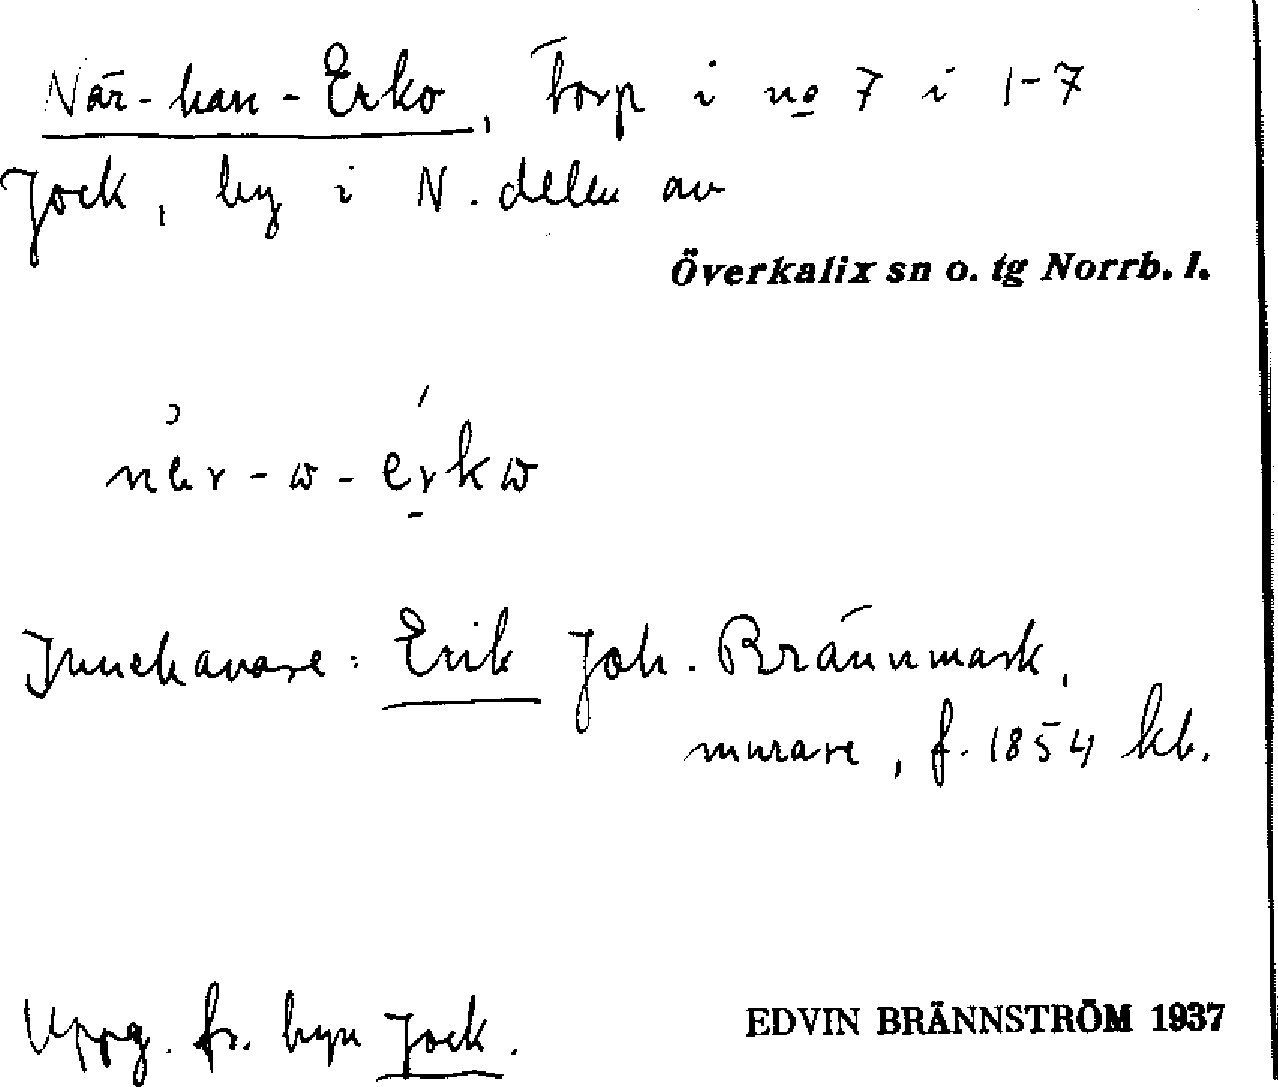 När-han-Erko, Torp i no 7 i 1-7
Jock, by i N. delen av
Överkalix sn o. tg Norrb. l.
Innehavare: Erik Joh. Brännmark,
murare, f. 1854 kb.
Uppg. fr. byn Jock.
EDVIN BRÄNNSTRÖM 1937